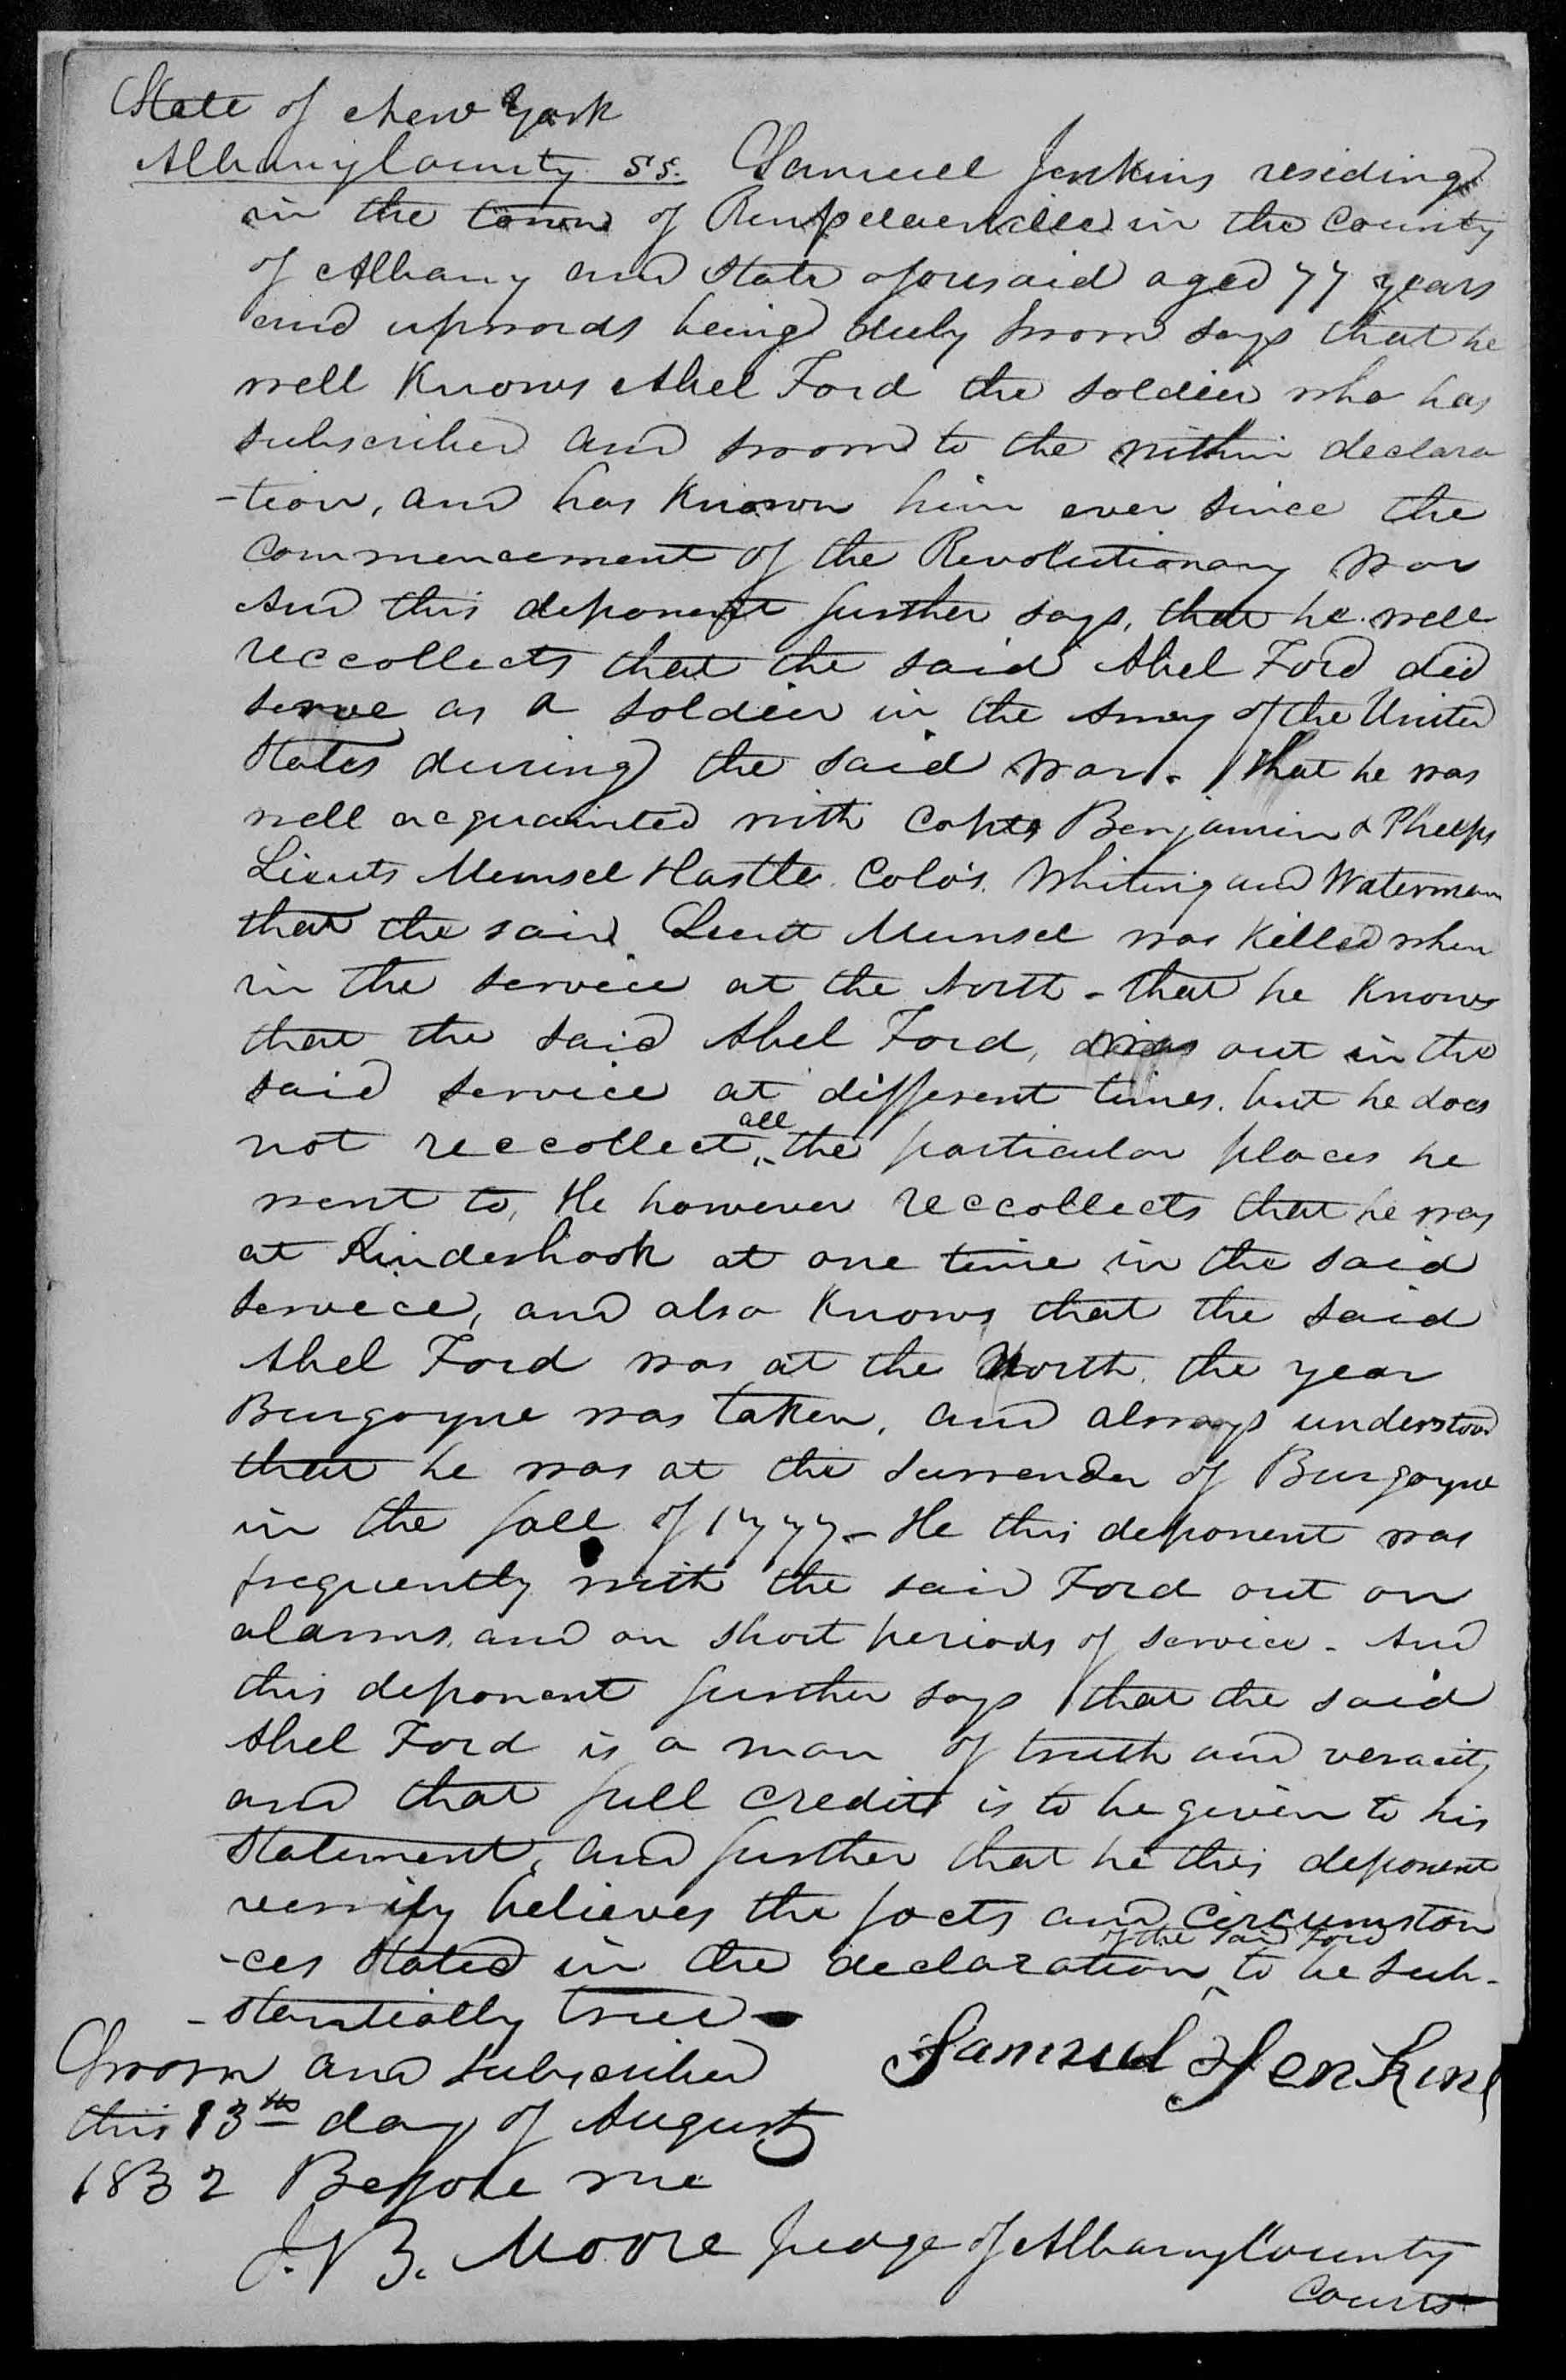 State of New York
Albany County ss. Samuel Jenkins residing
in the town of Rensselaerville in the County
of Albany and State aforesaid aged 77 years
and upwards being duly sworn says that he
well knows Abel Ford the soldier who has
subscribed and sworn to the within declara
-tion, and has known him ever since the
commencement of the Revolutionary war
And this deponent further says, that he well
reccollects that the said Abel Ford did
serve as a soldier in the Army of the United
States during the said war. That he was
well acquainted with Capts Benjamin & Phelps
Lieuts Munsel Hastle. Colo's. Whiting and Waterman
that the said Lieut Munsel was killed when
in the service at the North - that he knows
that the said Abel Ford, was out in the
said service at different times. but he does
not reccollect all the particular places he
went to, He however reccollects that he was
at Kinderhook at one time in the said
service, and also knows that the said
Abel Ford was at the North. the year
Burgoyne was taken, and always understood
that he was at the surrender of Burgoyne
in the fall of 1777 - He this deponent was
frequently with the said Ford out on
alarms, and on short periods of service - And
this deponent further says that the said
Abel Ford is a man of truth and veracity
and that full credit is to be given to his
statement, and further that he this deponent
verrily believes the facts and circumstan
-ces stated in the declaration of the said Ford to be sub-
-stantially true -
Samuel Jenkins
Sworn and subscribed
this 13th day of August
1832 Before me
J. B. Moore Judge of Albany County
Courts